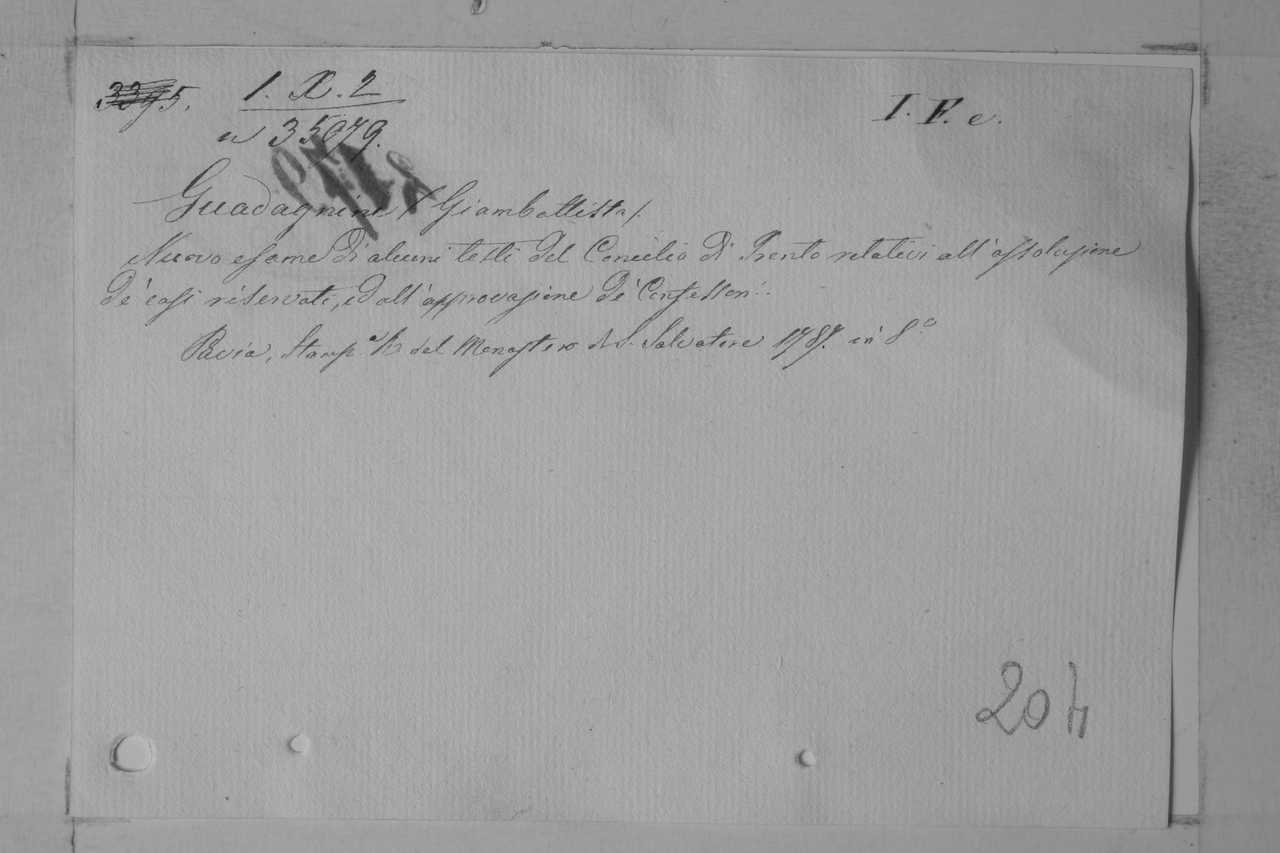 3395. I. X. 2 I. F. e.
n 35079.
Guadagnini /Giambattista/.
Nuovo esame di alcuni testi del Concilio di Trento relativi all'assoluzione
de' casi riservati, ed all'approvazione de' Confessori.
Pavia, Stamp.a R. del Monastero di S. Salvatore 1787. in 8.o
204